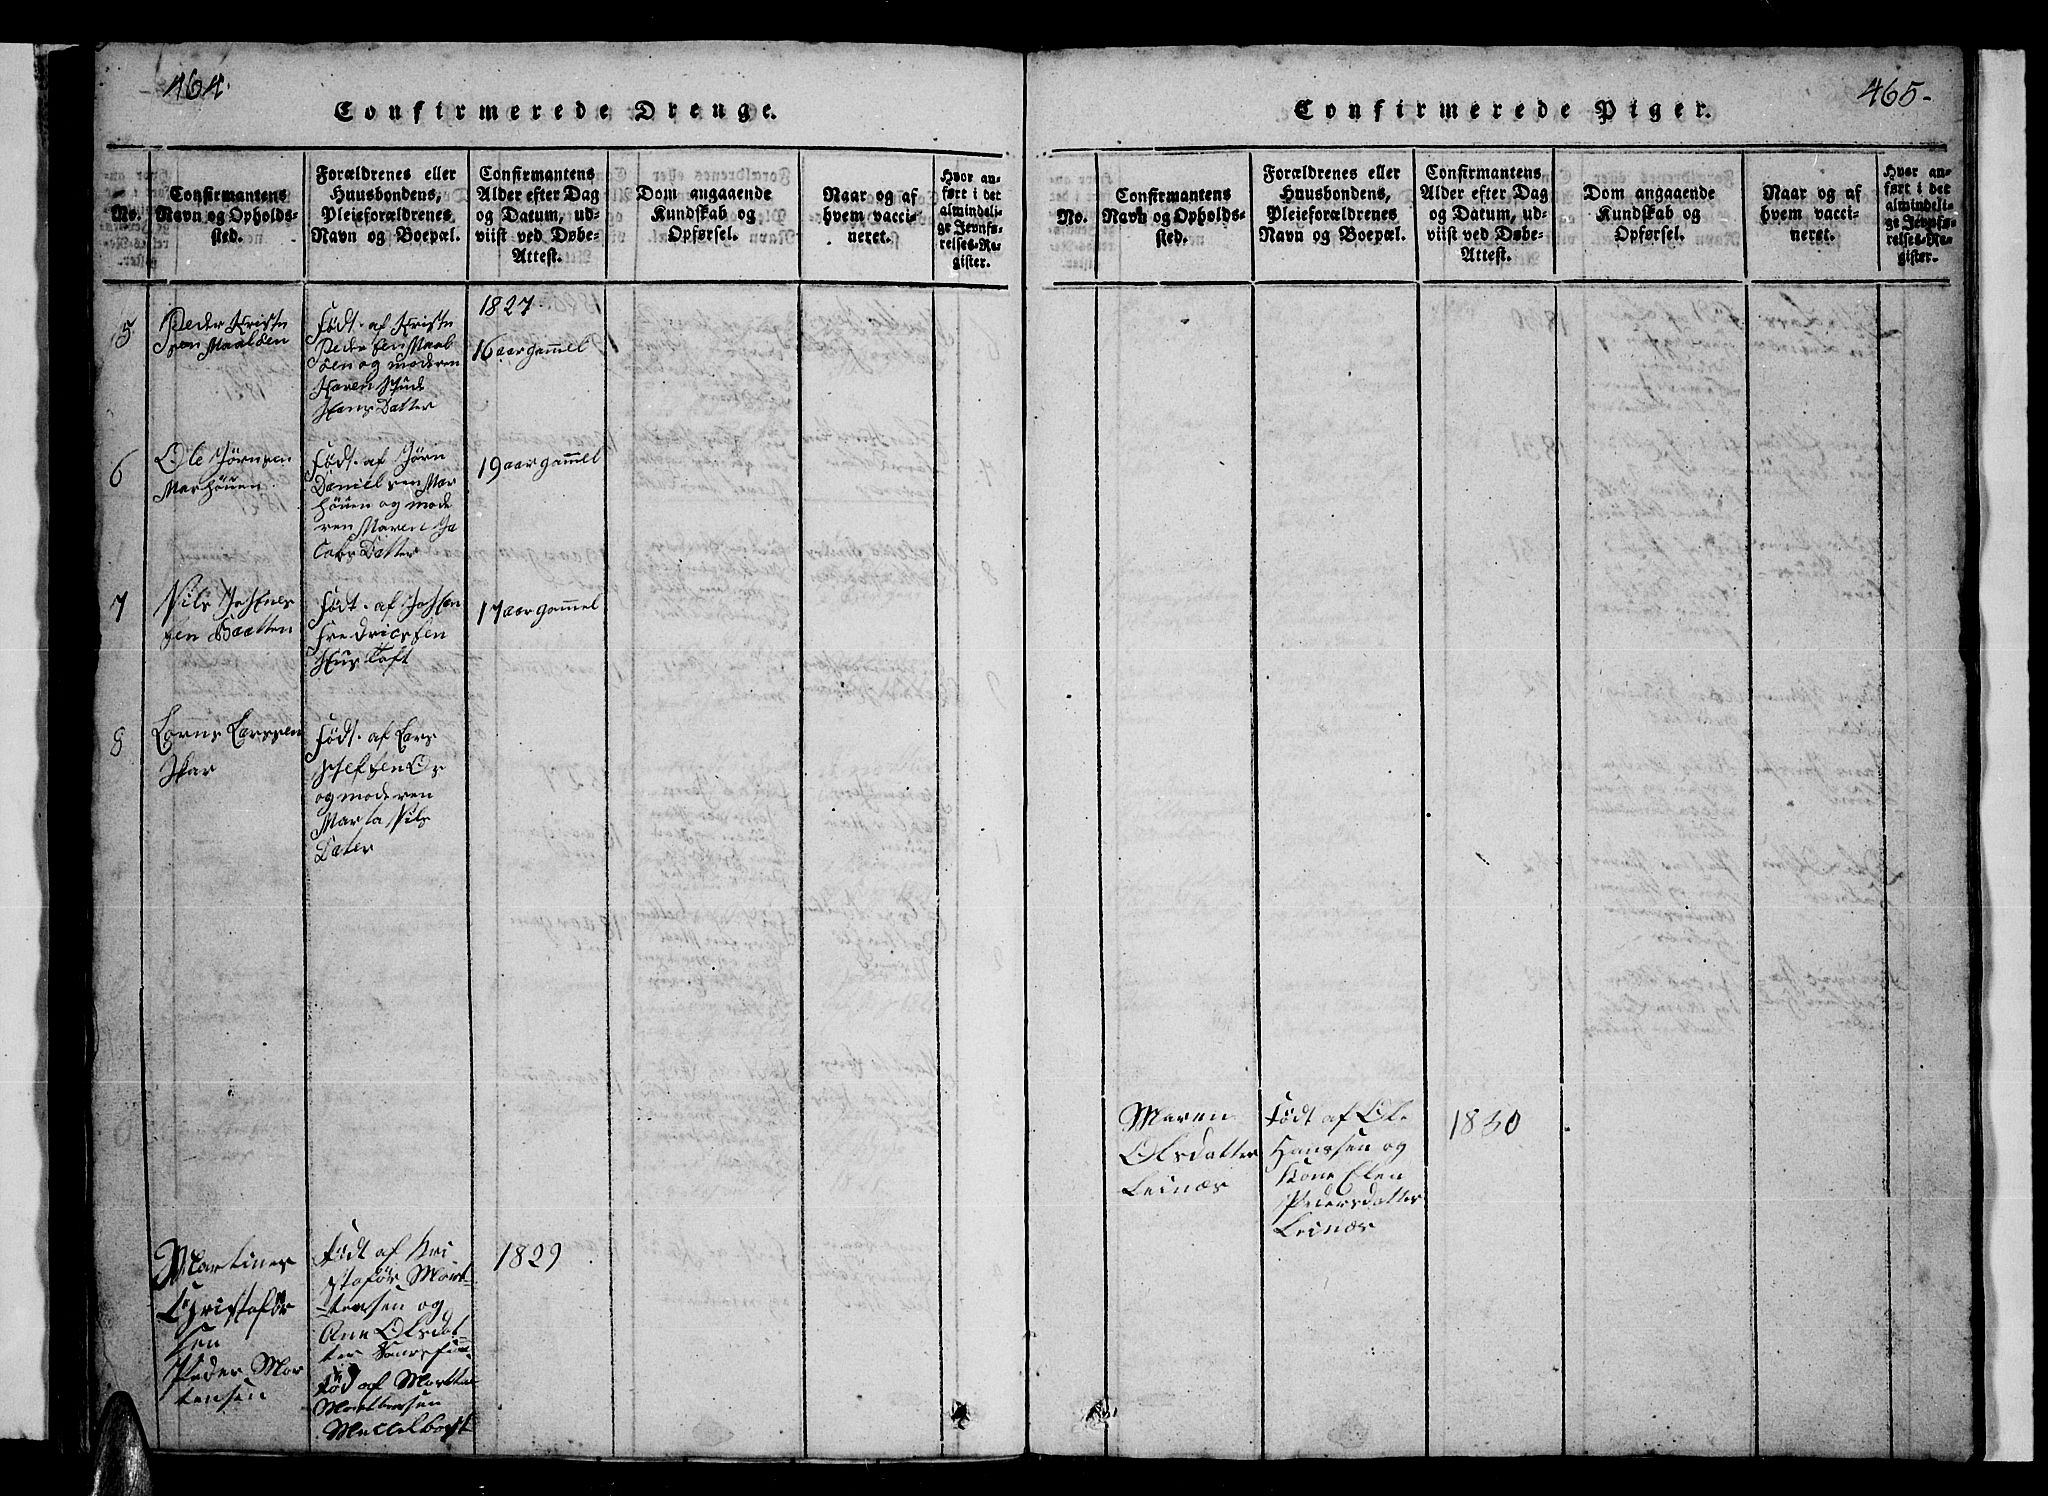 464.
Confirmerede Drenge.
No.
Confirmantens
Navn og Opholds-
sted.
Forældrenes eller
Huusbondens,
Pleieforældrenes
Navn og Boepæl.
Confirmantens
Alder efter Dag
og Datum, ud-
viist ved Døbe-
Attest.
Dom angaaende
Kundskab og
Opførsel.
Naar og af
hvem vacci-
neret.
Hvor an-
ført i det
almindeli-
ge Jevnfø-
relses-Re-
gister.
5
Peder Kriste
sen Maalsen
Født af Kriste
Pedersen Maal
sen og moderen
Karen
Hans Datter
1827.
16 aar gammel
6
Ole Jörnsen
Marhöuen
Födt af Jörn
Daniel sen Mar
höuen og mode
ren Maren Ja
cobs Datter
19 aar gammel
7
Nils Johnes
sen
Födt af Johan
Fredricsen
Hus Toft
17 aar gammel
8
Larssen
Skar
Födt af Lars
og moderen
Marta Nils
Dater
Martines
Christofør
sen
Peder Mor
tensen
Født af Kri
stofør Mort
tensen og
Ane Olsdat
ter
Fød af Morten
Mellelborst
1829
465-
Confirmerede Piger.
No.
Confirmantens
Navn og Opholds-
sted.
Forældrenes eller
Huusbondens,
Pleieforældrenes
Navn og Boepæl.
Confirmantens
Alder efter Dag
og Datum, ud-
viist ved Døbe-
Attest.
Dom angaaende
Kundskab og
Opførsel.
Naar og af
hvem vacci-
neret.
Hvor an-
ført i det
almindeli-
ge Jevnfø-
relses-Re-
gister.
Maren
Olsdatter
Leinæs
Født af Ole
Hanssen og
Kone Elen
Pedersdatter
Leinæs
1830